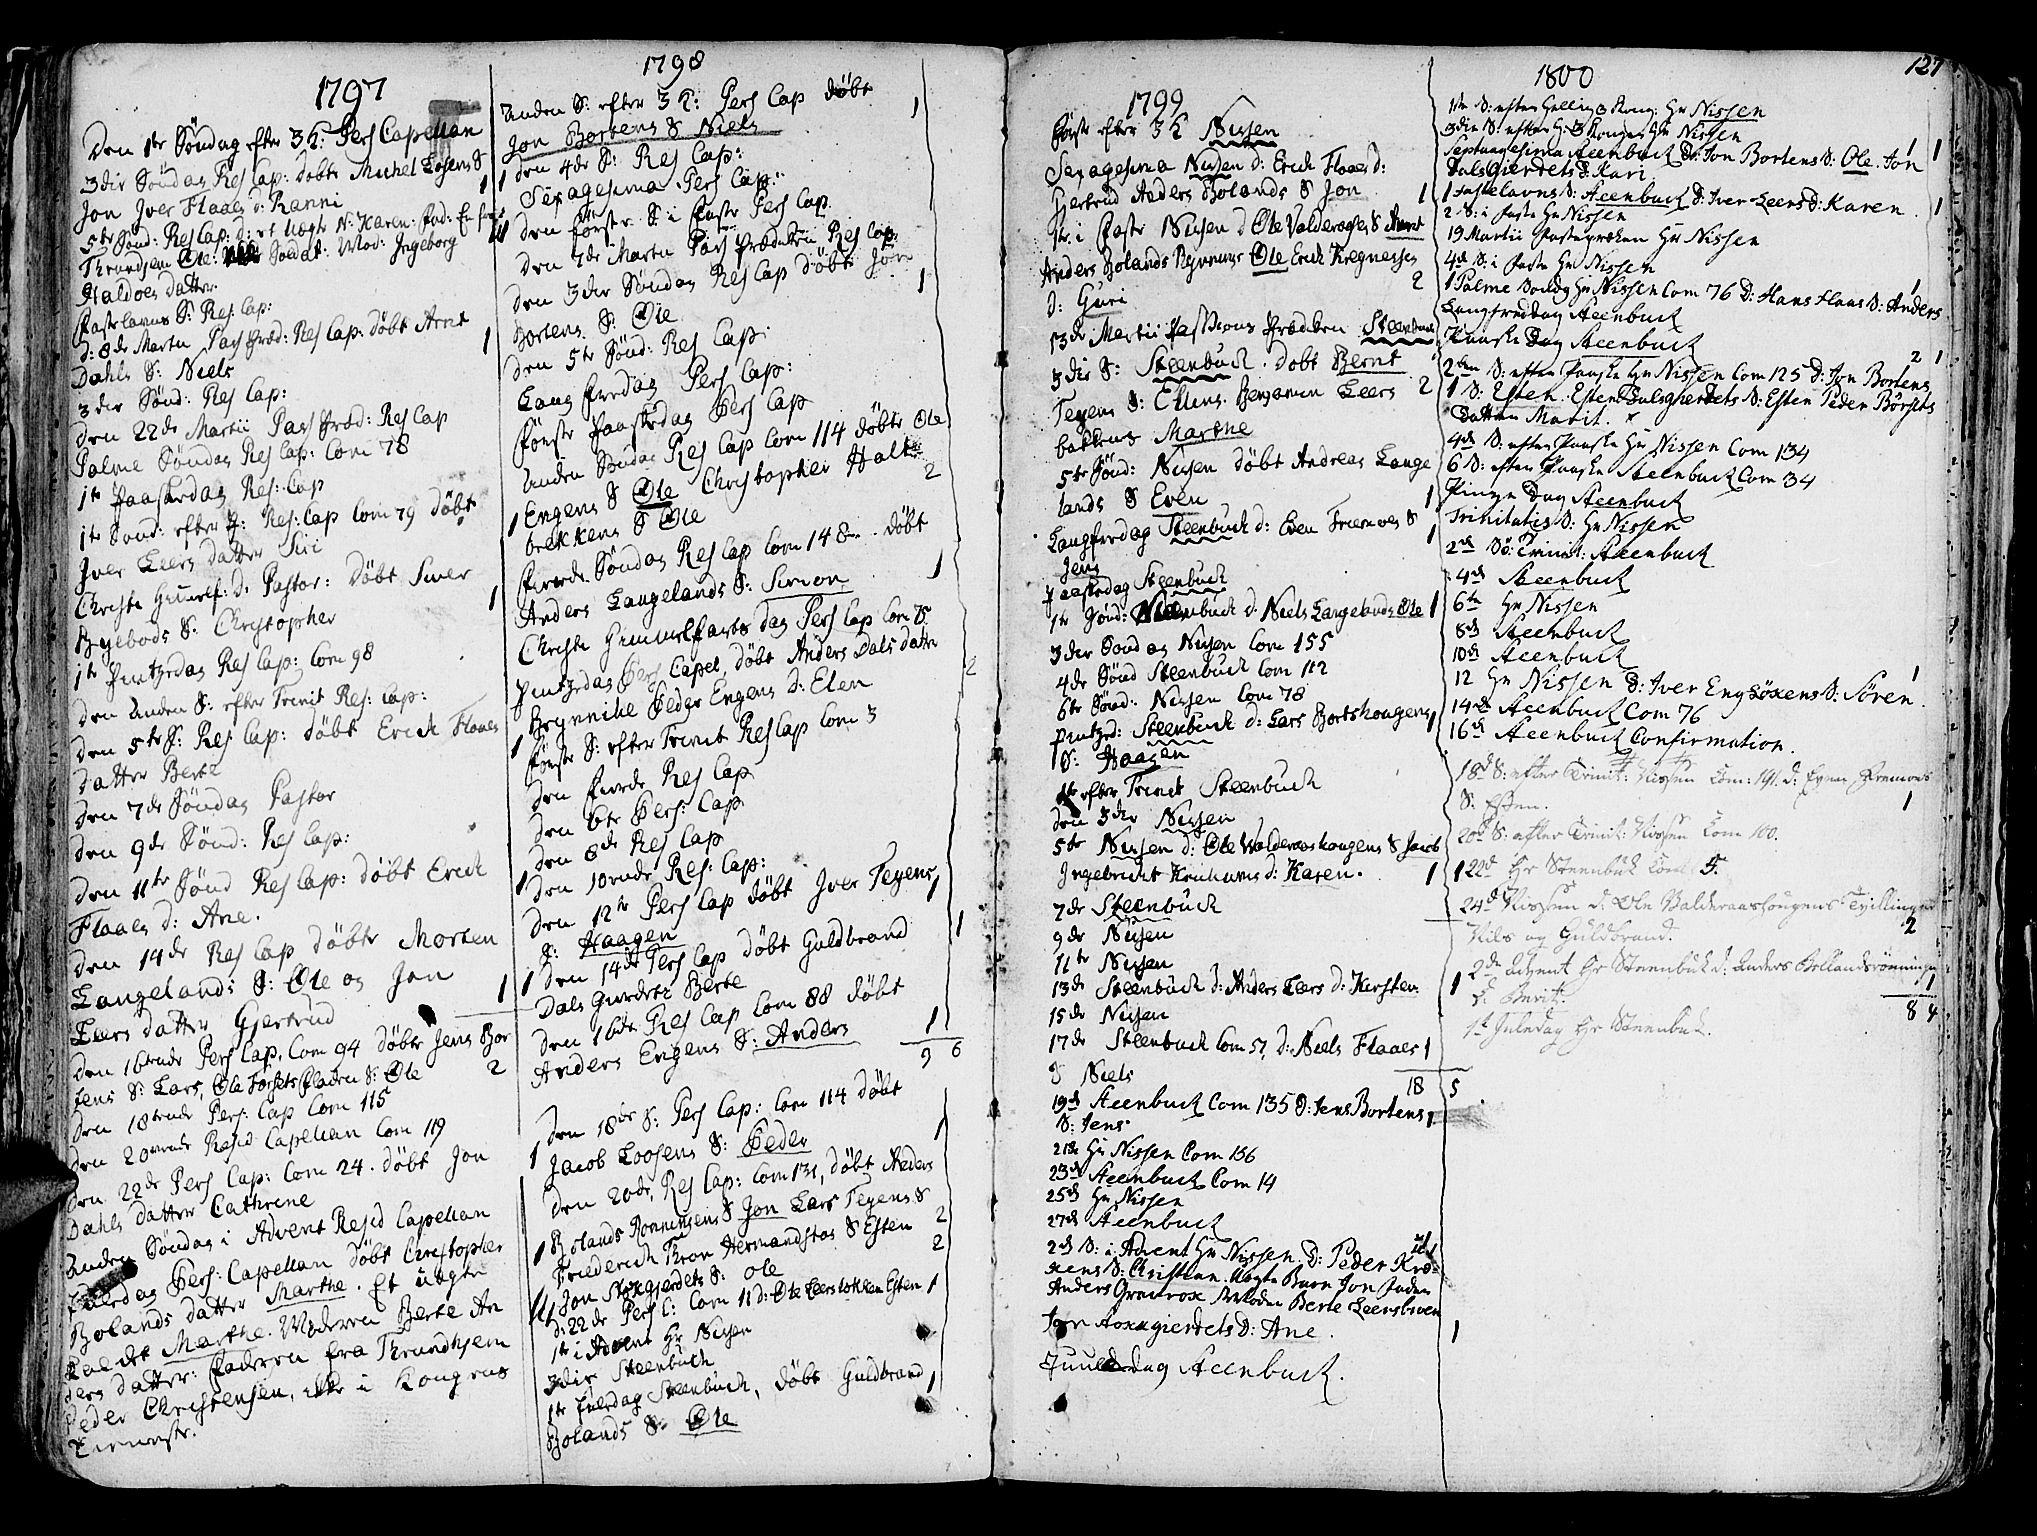 1797
Den 1te Søndag efter 3 K: Pers Capellan
3die Søndag Res Cap: døbte Michel Losens S
Jon Iver Flaaes d: Ranni 1
5te Sønd: Res Cap: d: et Uægte N: Karen: Fad:
Throndsen Ole: Soldat: Mod: Ingeborg
Haldoes datter
Fastelavns S: Res: Cap:
d: 8de Martii Pass Præd: Res Cap: døbt Arnt
Dahls S: Niels 1
3die Sønd: Res Cap:
den 22de Martii Pass Præd: Res Cap
Palme Søndag Res Cap: Com 78
1te Paaskedag Res: Cap
1te Sønd: efter P: Res: Cap Com 79 døbt
Iver Leers datter Siri
Christi Himelf: d: Pastor: døbt Siver
Bygebods S: Christopher 1
1te Pintzedag Res Cap: Com 98
den Anden S: efter Trinit Res: Cap:
den 5te S: Res: Cap: døbt Erick Flaaes
datter Berte
den 7de Søndag Pastor
den 9de Sønd: Res Cap:
den 11te Sønd Res Cap: døbt Erick
Flaaes d: Ane.
den 14de Res Cap døbte Morten
Langelands S: Ole og Jon
Leers datter Gjertrud 1
den 16tende Pers Cap, Com 94 døbte Jens Bor
tens S: Lars, Ole Forsets Pladsen S: Ole 2
den 18tende Pers: Cap Com 115
den 20vende Resid Capellan Com 119
den 22de Pers Cap: Com 24. døbt Jon
Dahls datter Cathrine
Anden Søndag i Advent Resid Capellan
Juledag Pers: Capellan døbt Christopher
Bolands datter Marthe. Et uægte
kaldet Marthe. Moderen Berte An
ders datter: Faderen fra Thrundhjem
Peder Christensen, ikke i Kongens
Tieneste.
1798
Anden S: efter 3 K: Pers Cap døbt
Jon Bortens S Niels 1
1 den 4de S: Res Cap:
Sexagesima Pers Cap:
den første S i Faste Pers Cap
den 7de Martii Pass Prædiken Res Cap:
den 3die Søndag Res Cap døbt Jon
Bortens S: Ole 1
den 5te Sønd: Res Cap:
Lang Fredag Pers Cap:
første Paaskedag Pers Cap
Anden Søndag Res Cap Com 114 døbte Ole
1 Engens S Ole Christopher Halt
bekkens S Ole 2
fierde Søndag Res Cap Com 148 døbt
Anders Langelands S: Simon 1
Christi Himmelfarts dag Pers Cap Com 75
Pintzedag Pers Capel, døbt Anders Dals datter
Brynnild Pedge Engens d: Elen 2
1 første S: efter Trinit Res Cap Com 3
den fierde Res Cap
den 6te Pers: Cap
den 8de Res Cap
1 den 10ende Res: Cap:
den 12te Pers Cap døbt Iver Tegens
S: Haagen 1
1 den 14de Pers Cap døbt Guldbrand
Dals Gierdets Berte 1
den 16de Res Cap Com 88 døbt
Anders Engens S: Anders 1
9 6
den 18de S: Pers Cap: Com 114 døbt
1 Jacob Loosens S: Peder 1
den 20de, Res Cap: Com 131, døbt Anders
1 Bolands Rønningens S Jon Lars Tegens S 2
Friderich Thron Hermandstas S Esten 2
Jon Stoxgierdets S: Ole
d: 22de Pers C: Com 11 d: Ole Leerslokken Esten 1
1te i Advent Hr Nissen
3die Steenbuch
1te Juledag Steenbuch, døbt Guldbrand
Bolands S: Ole 1
1799
første efter 3 K Nissen
Sexagesima Nissen d: Erick Flaaes d:
Gjertrud Anders Bolands S Jon 1
1te i Faste Nissen d Ole Valderogens S Arent
Anders Bolands Rønnings Ole Erich Kregnessen
d: Guri 2
13de Martii Passions Prædiken Steenbuch
3die S: Steenbuch. døbt Bernt
Tegens S: Ellens. Benjamin Leers 2
bakkens Marthe
5te Sønd: Nissen døbt Andreas Lange
lands S Even 1
Langfredag Steenbuch d: Even Freemoes S
Jens 1
Paaskedag Steenbuch
1te Sønd: Steenbuch d: Niels Langelands Ole 1
3die Søndag Nissen Com 155
4de Sønd Steenbuch Com 112
6te Sønd: Nissen Com 78
Pintzed: Steenbuch d: Lars Bortshougens 1
S: Haagen
1te efter Trinit Steenbuch
den 3die Nissen
5te Nissen d: Ole Walderaashougens S Jacob
Ingebricht Kruhaus d: Karen. 1 1
7de Steenbuch
9de Nissen
11te Nissen
13de Steenbuch d: Anders Leers d: Kirsten 1
15de Nissen
17de Steenbuch Com 57, d: Niels Flaaes 1
S Niels
18 5
19de Steenbuch Com 135 D: Jens Bortens 1
S: Jens
21de Hr Nissen Com 156
23de Steenbuch Com 14
25de Hr Nissen
27de Steenbuch
2de S: i Advent Hr Nissen. D: Peder Krø
xens S: Christian. Uægte Barn Jon Faderen
Anders Granrox Moder Berte Leersbroen
Jon Foxxgierdets D: Ane. 1
Juuledag Steenbuch.
127
1800
1te S: efter Hellig 3 Kong: Hr Nissen
3die S: efter H: 3 Konger Hr Nissen
Septuagesima Steenbuch D: Jon Bortens S: Ole. Jon 1 1
Dalsgierdets D: Kari
1 Fastelavns S: Steenbuch D: Iver Leers D: Karen. 1
2. S: i Faste Hr Nissen
19 Martii Fastepræken Hr Nissen
4de S: i Faste Hr Nissen
1 Palme Sondg Hr Nissen Com 76 D: Hans Flaas S: Anders 1
Langfredag Steenbuch
Paaske Dag Steenbuch
2den S: efter Paaske Hr Nissen Com 125 D: Jon Bortens 2 1
1 S: Esten. Esten Dalsgierdets S: Esten Peder Børsets
Datter Marit.
4de S: efter Paaske Hr Nissen Com 134
6 S: efter Paaske Steenbuch Com 34
Pintze Dag Steenbuch
Trinitatis S: Hr Nissen
2de Sø: Trinit: Steenbuch
4de Steenbuch
6te Hr Nissen
8de Steenbuch
10de Steenbuch
12 Hr Nissen D: Iver Engsøxens S: Sören. 1
14de Steenbuch Com 76
16de Steenbuch Confirmation.
18de S: efter Trinit: Nissen Com: 141. d: Even Fremoes
S: Esten. 1
20de S: efter Trinit: Nissen Com 100.
1 22de Hr Steenbuk Com 5.
24de Nissen d: Ole Valderaashougens Tvillinger
Nils og Guldbrand. 2
2den Advent Hr Steenbuk d: Anders Bollandsrønningen
d: Berit. 1
8 4
1te Juledag Hr Steenbuk.